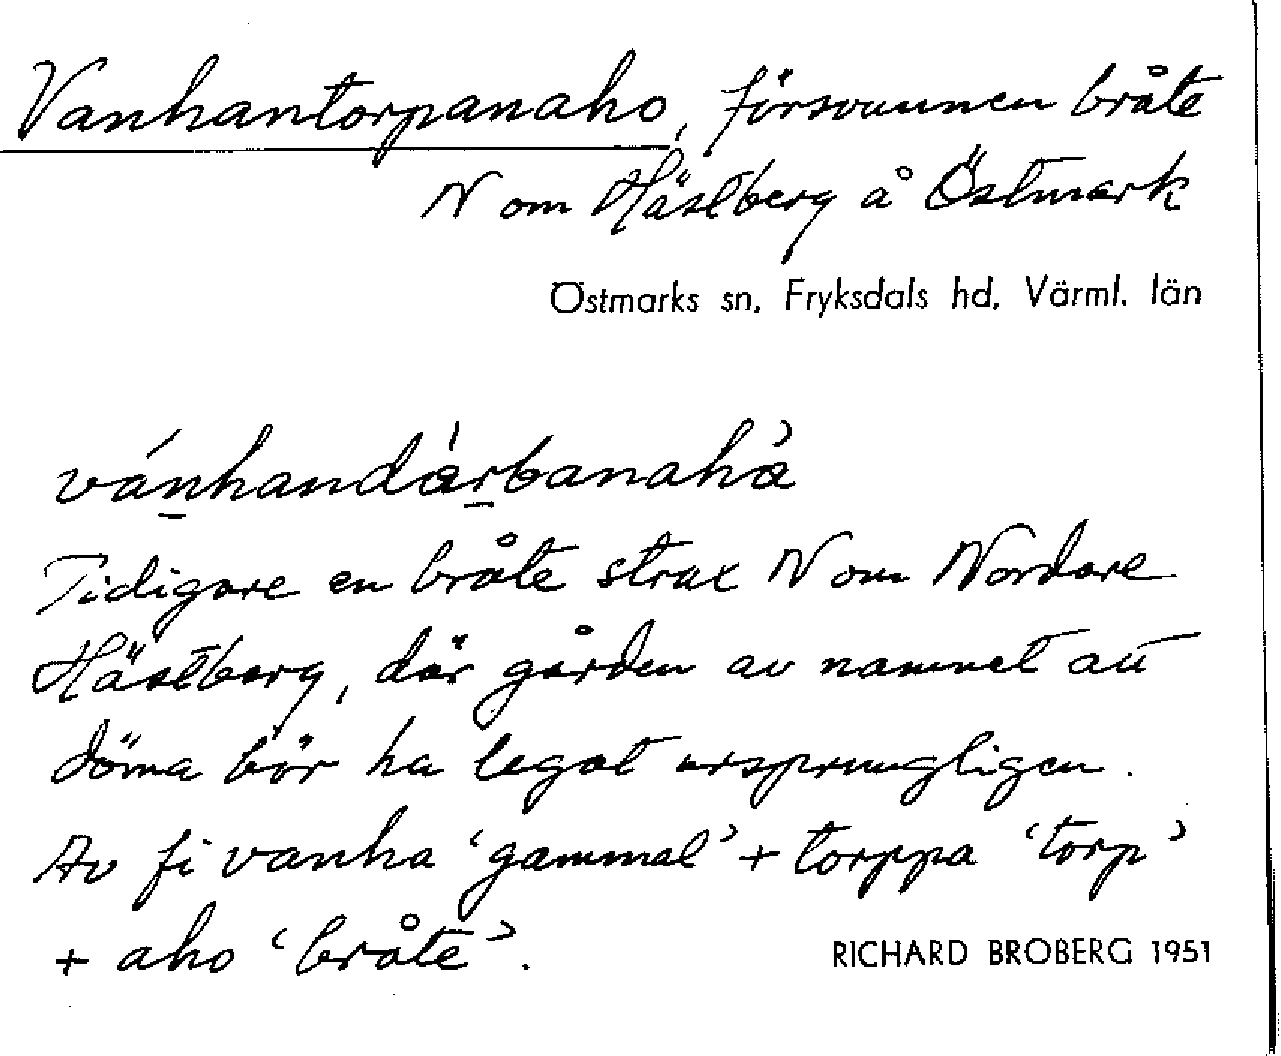 Vanhantorpanaho, försvunnen bråte
N om Hästberg å Östmark
Östmarks sn, Fryksdals hd, Värml. län
vánhandàrbanahà
Tidigare en bråte strax N om Nordare
Hästberg, där gården av namnet att
döma bör ha legat ursprungligen.
Av fi vanha ‘gammal’ + torppa ‘torp’
+ aho ‘bråte’.
RICHARD BROBERG 1951